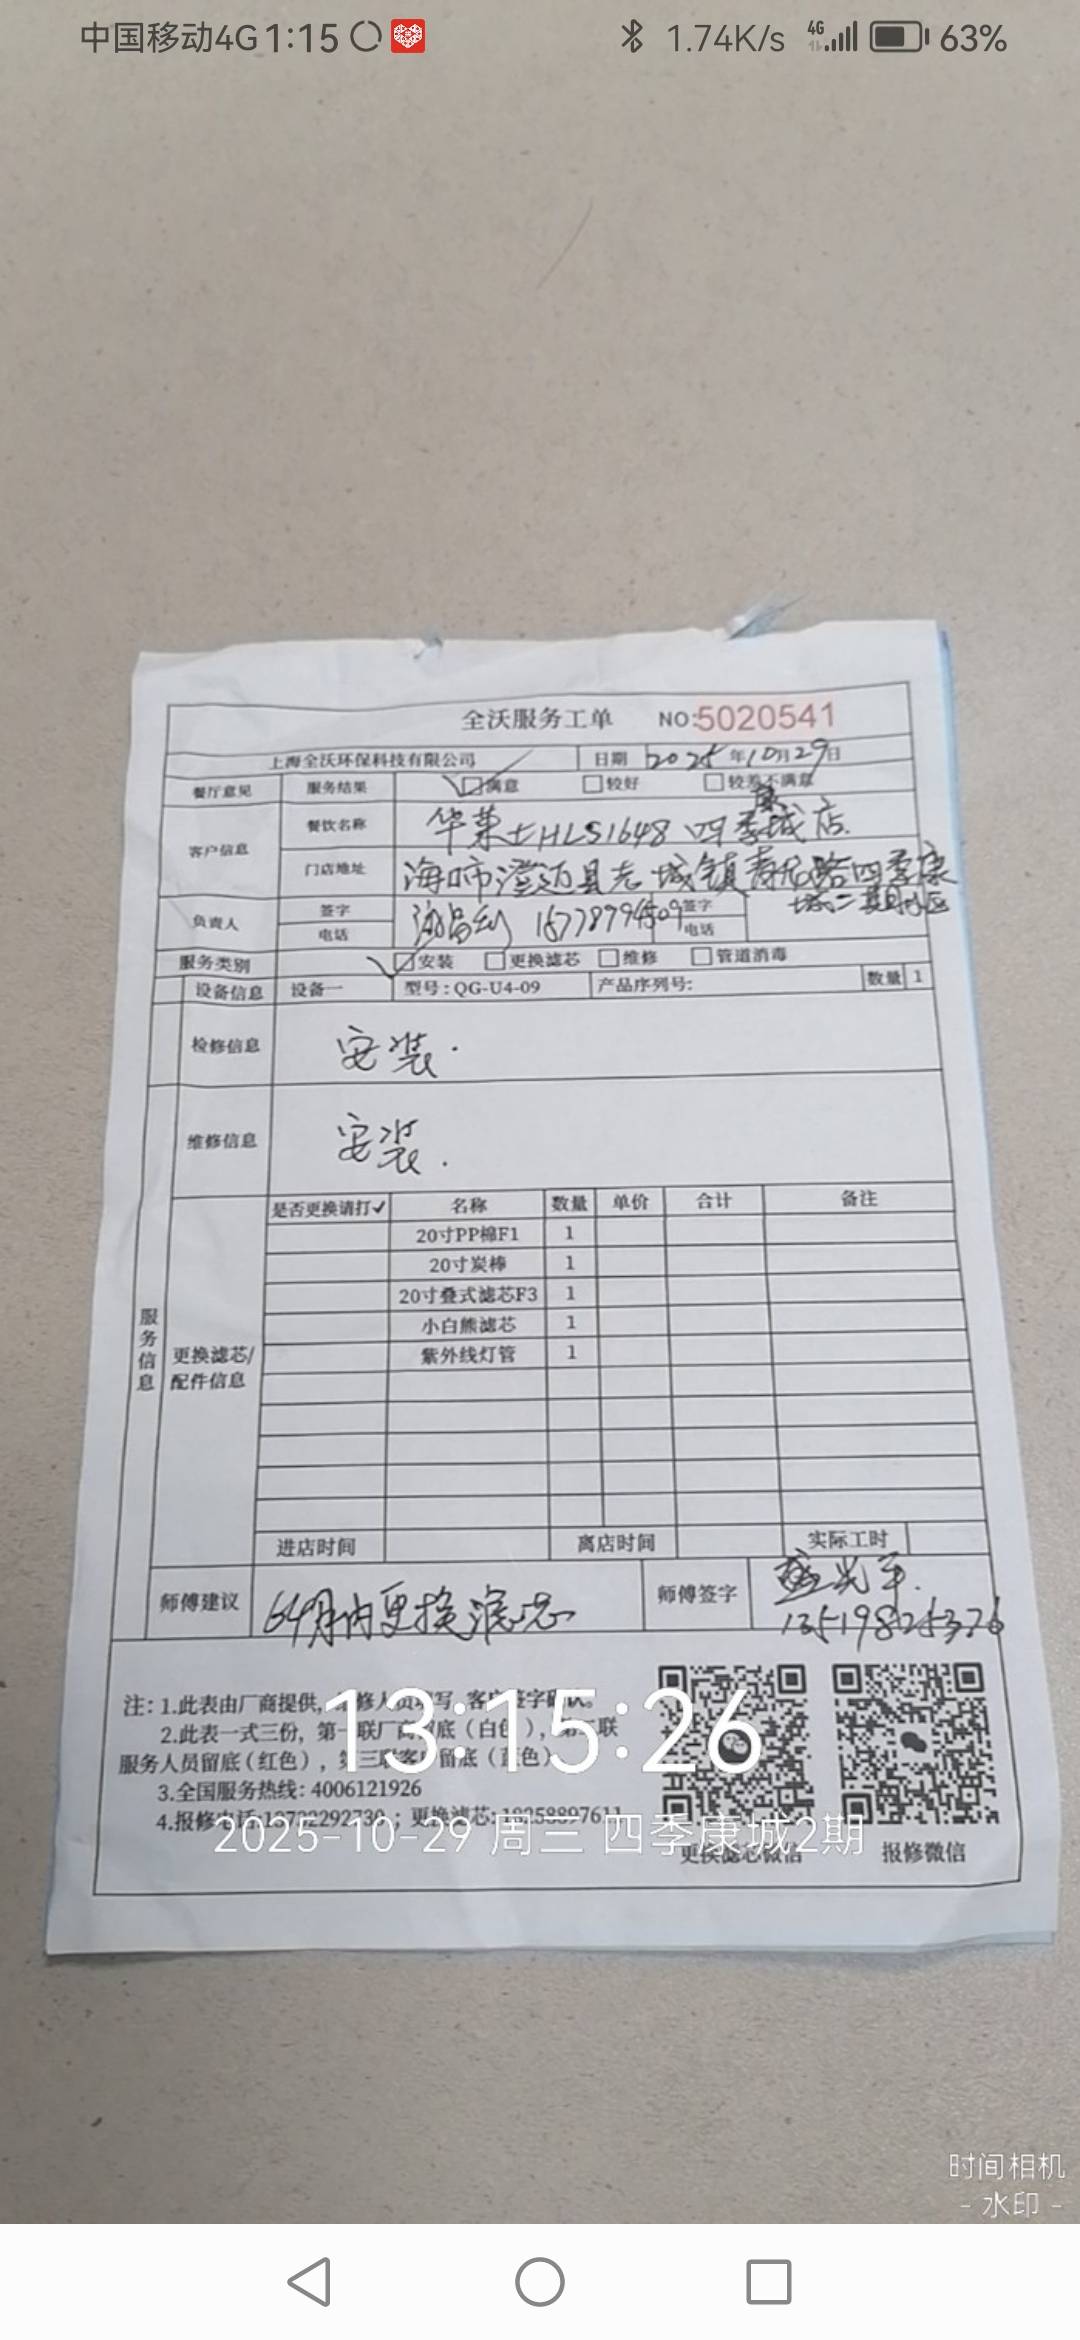 中国移动4G 1:15
1.74K/s 4G 63%
全沃服务工单 NO:5020541
上海全沃环保科技有限公司 日期 2025年10月29日
餐厅意见 服务结果 满意 较好 较差不满意
客户信息 餐饮名称 华莱士HLS1648 四季康城店.
门店地址 海口市澄迈县老城镇 路四季康
城二期小区
负责人 签字 签字
电话 电话
服务类别 安装 更换滤芯 维修 管道消毒
设备信息 设备一 型号:QG-U4-09 产品序列号: 数量 1
检修信息 安装.
维修信息 安装.
服务信息
更换滤芯/
配件信息
是否更换请打✓ 名称 数量 单价 合计 备注
20寸PP棉F1 1
20寸炭棒 1
20寸叠式滤芯F3 1
小白熊滤芯 1
紫外线灯管 1
进店时间 离店时间 实际工时
师傅建议 6个月内更换滤芯 师傅签字
13519825376
注: 1.此表由厂商提供, 维修人员填写, 客户签字确认。
2.此表一式三份, 第一联厂商留底 (白色), 第二联
服务人员留底 (红色), 第三联客户留底 (蓝色)
3.全国服务热线: 4006121926
4.报修电话: ; 更换滤芯: 18258897611
更换滤芯微信 报修微信
13:15:26
2025-10-29 周三 四季康城2期
时间相机
- 水印 -